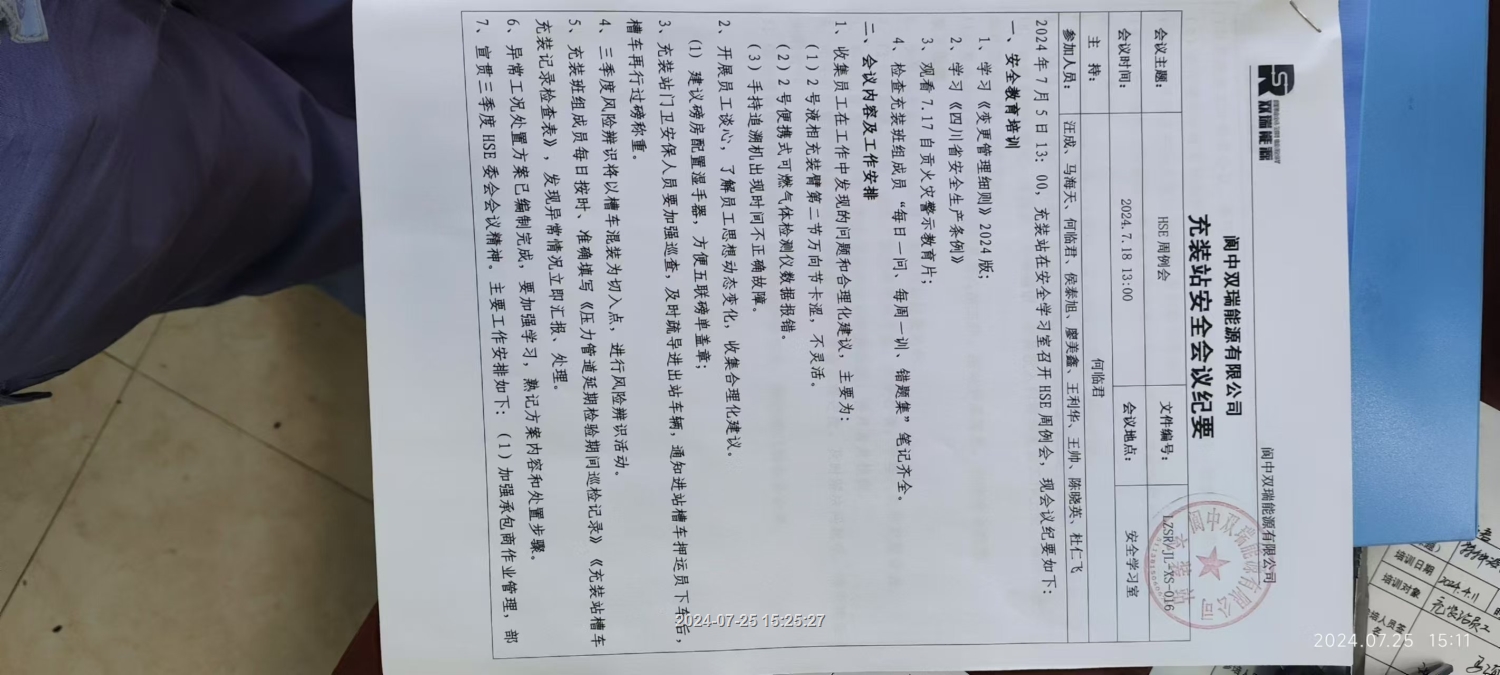 双瑞能源
阆中双瑞能源有限公司
阆中双瑞能源有限公司
充装站安全会议纪要
会议主题： HSE 周例会 文件编号： LZSR/JL-XS-016
会议时间： 2024.7.18 13:00 会议地点： 安全学习室
主 持： 何临君
参加人员： 汪成、马海天、何临君、侯泰旭、廖美鑫、王利华、王帅、陈晓英、杜仁飞
2024 年 7 月 5 日 13：00，充装站在安全学习室召开 HSE 周例会，现会议纪要如下：
一、安全教育培训
1、学习《变更管理细则》2024 版；
2、学习《四川省安全生产条例》
3、观看 7.17 自贡火灾警示教育片；
4、检查充装班组成员“每日一问、每周一训、错题集”笔记齐全。
二、会议内容及工作安排
1、收集员工在工作中发现的问题和合理化建议，主要为：
（1）2 号液相充装臂第二节万向节卡涩，不灵活。
（2）2 号便携式可燃气体检测仪数据报错。
（3）手持追溯机出现时间不正确故障。
2、开展员工谈心，了解员工思想动态变化，收集合理化建议。
（1）建议磅房配置湿手器，方便五联磅单盖章；
3、充装站门卫安保人员要加强巡查，及时疏导进出站车辆，通知进站槽车押运员下车后，
槽车再行过磅称重。
4、三季度风险辨识将以槽车混装为切入点，进行风险辨识活动。
5、充装班组成员每日按时、准确填写《压力管道延期检验期间巡检记录》《充装站槽车
充装记录检查表》，发现异常情况立即汇报、处理。
6、异常工况处置方案已编制完成，要加强学习，熟记方案内容和处置步骤。
7、宣贯三季度 HSE 委会会议精神。主要工作安排如下：（1）加强承包商作业管理，部
阆中双瑞能源有限公司
充装站
培训日期 2024.4.11
培训对象
2024-07-25 15:25:27
2024.07.25 15:11